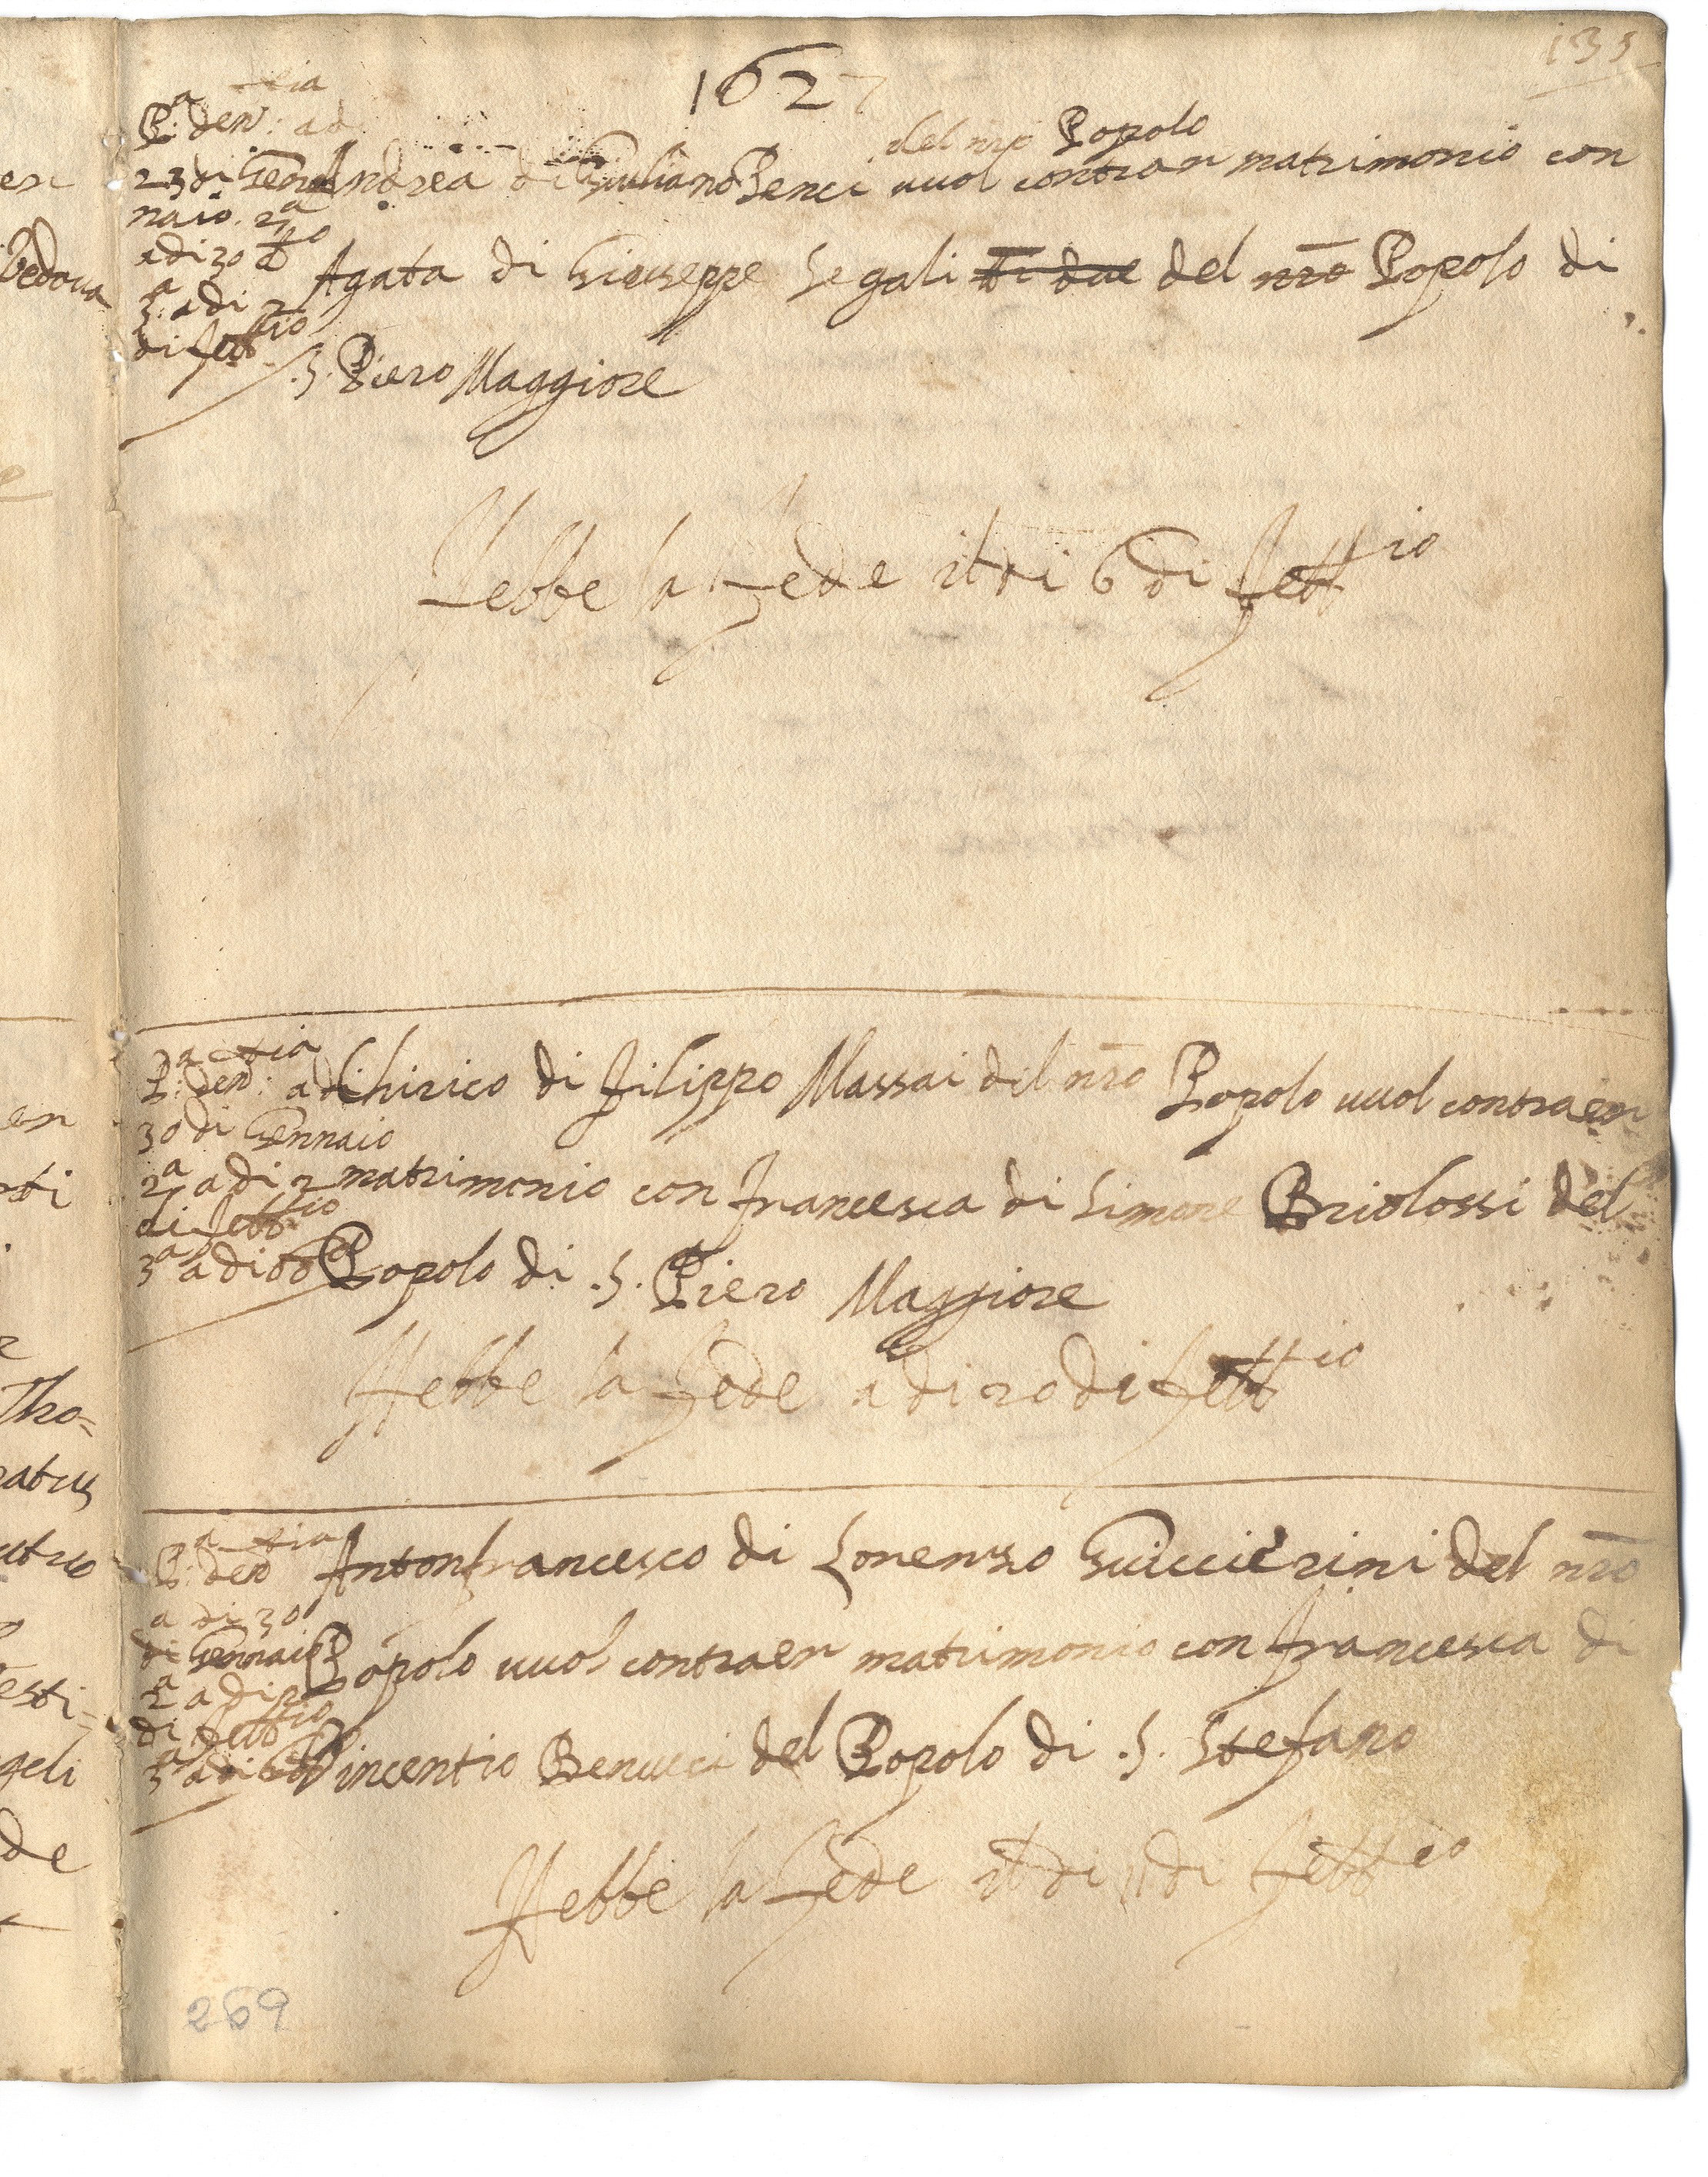 135
1627
P:ª den:tia ad
23 di Gen
naio. 2ª
adi 30 do
3ª adi 2
di febbio
del nro Popolo
Andrea di Giuliano Benci vuol contraer matrimonio con
Agata di Giuseppe Segali di due del nro Popolo di
.S. Piero Maggiore
Hebbe la Fede il di 6 di febbio
P:ª dentia: adi
30 di Gennaio
2ª adi 2
di febbio
3ª adi 6 do
Chirico di Filippo Massai del nro Popolo vuol contraer
matrimonio con Francesca di Simone Briolossi del
Popolo di .S. Piero Maggiore
Hebbe la Fede adi 20 di febbio
P:ª dentia
a di 30
di Gennaio
2ª adi 2
di febbio
3ª adi 6 do
Antonfrancesco di Lorenzo Guiccierini del nro
Popolo vuol contraer matrimonio con Francesca di
Vincentio Benucci del Popolo di .S. Stefano
Hebbe la Fede il di 11 di febbio
269